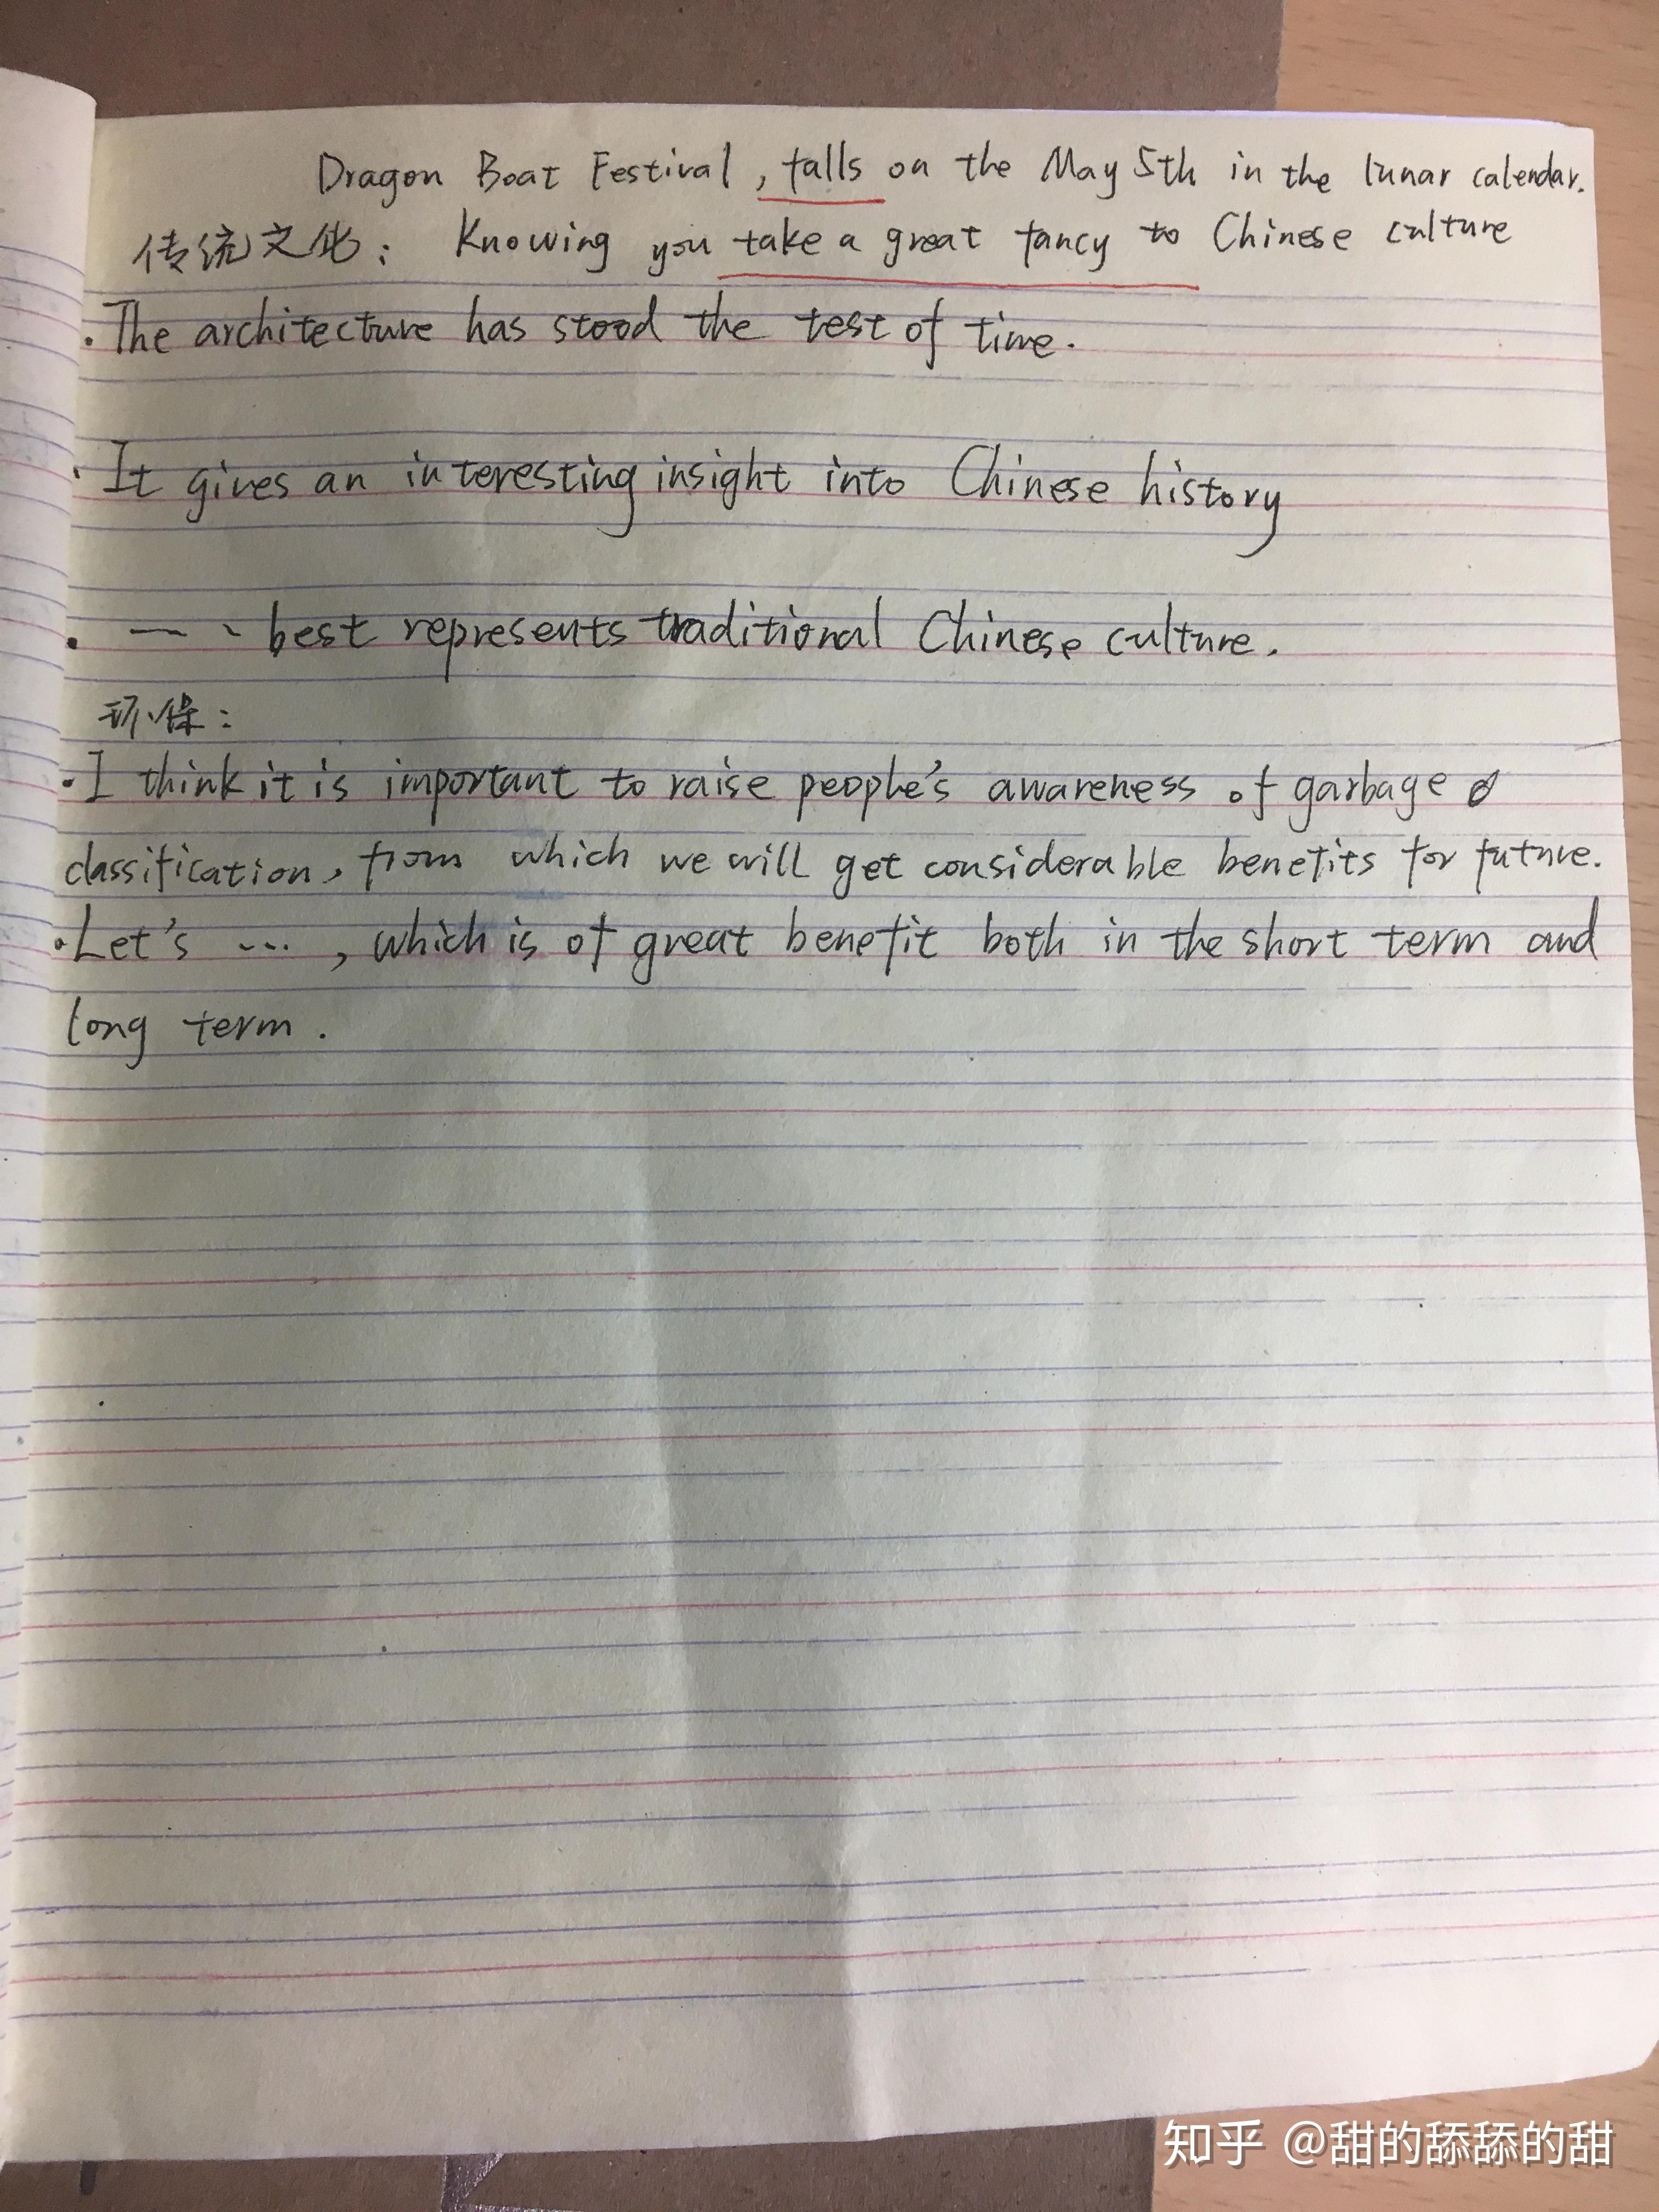 Dragon Boat Festival, falls on the May 5th in the lunar calendar.
传统文化: Knowing you take a great fancy to Chinese culture
·The architecture has stood the test of time.
·It gives an interesting insight into Chinese history
· — - best represents traditional Chinese culture.
环保:
·I think it is important to raise people's awareness of garbage
classification, from which we will get considerable benefits for future.
·Let's ..., which is of great benefit both in the short term and
long term.
知乎 @甜的舔舔的甜